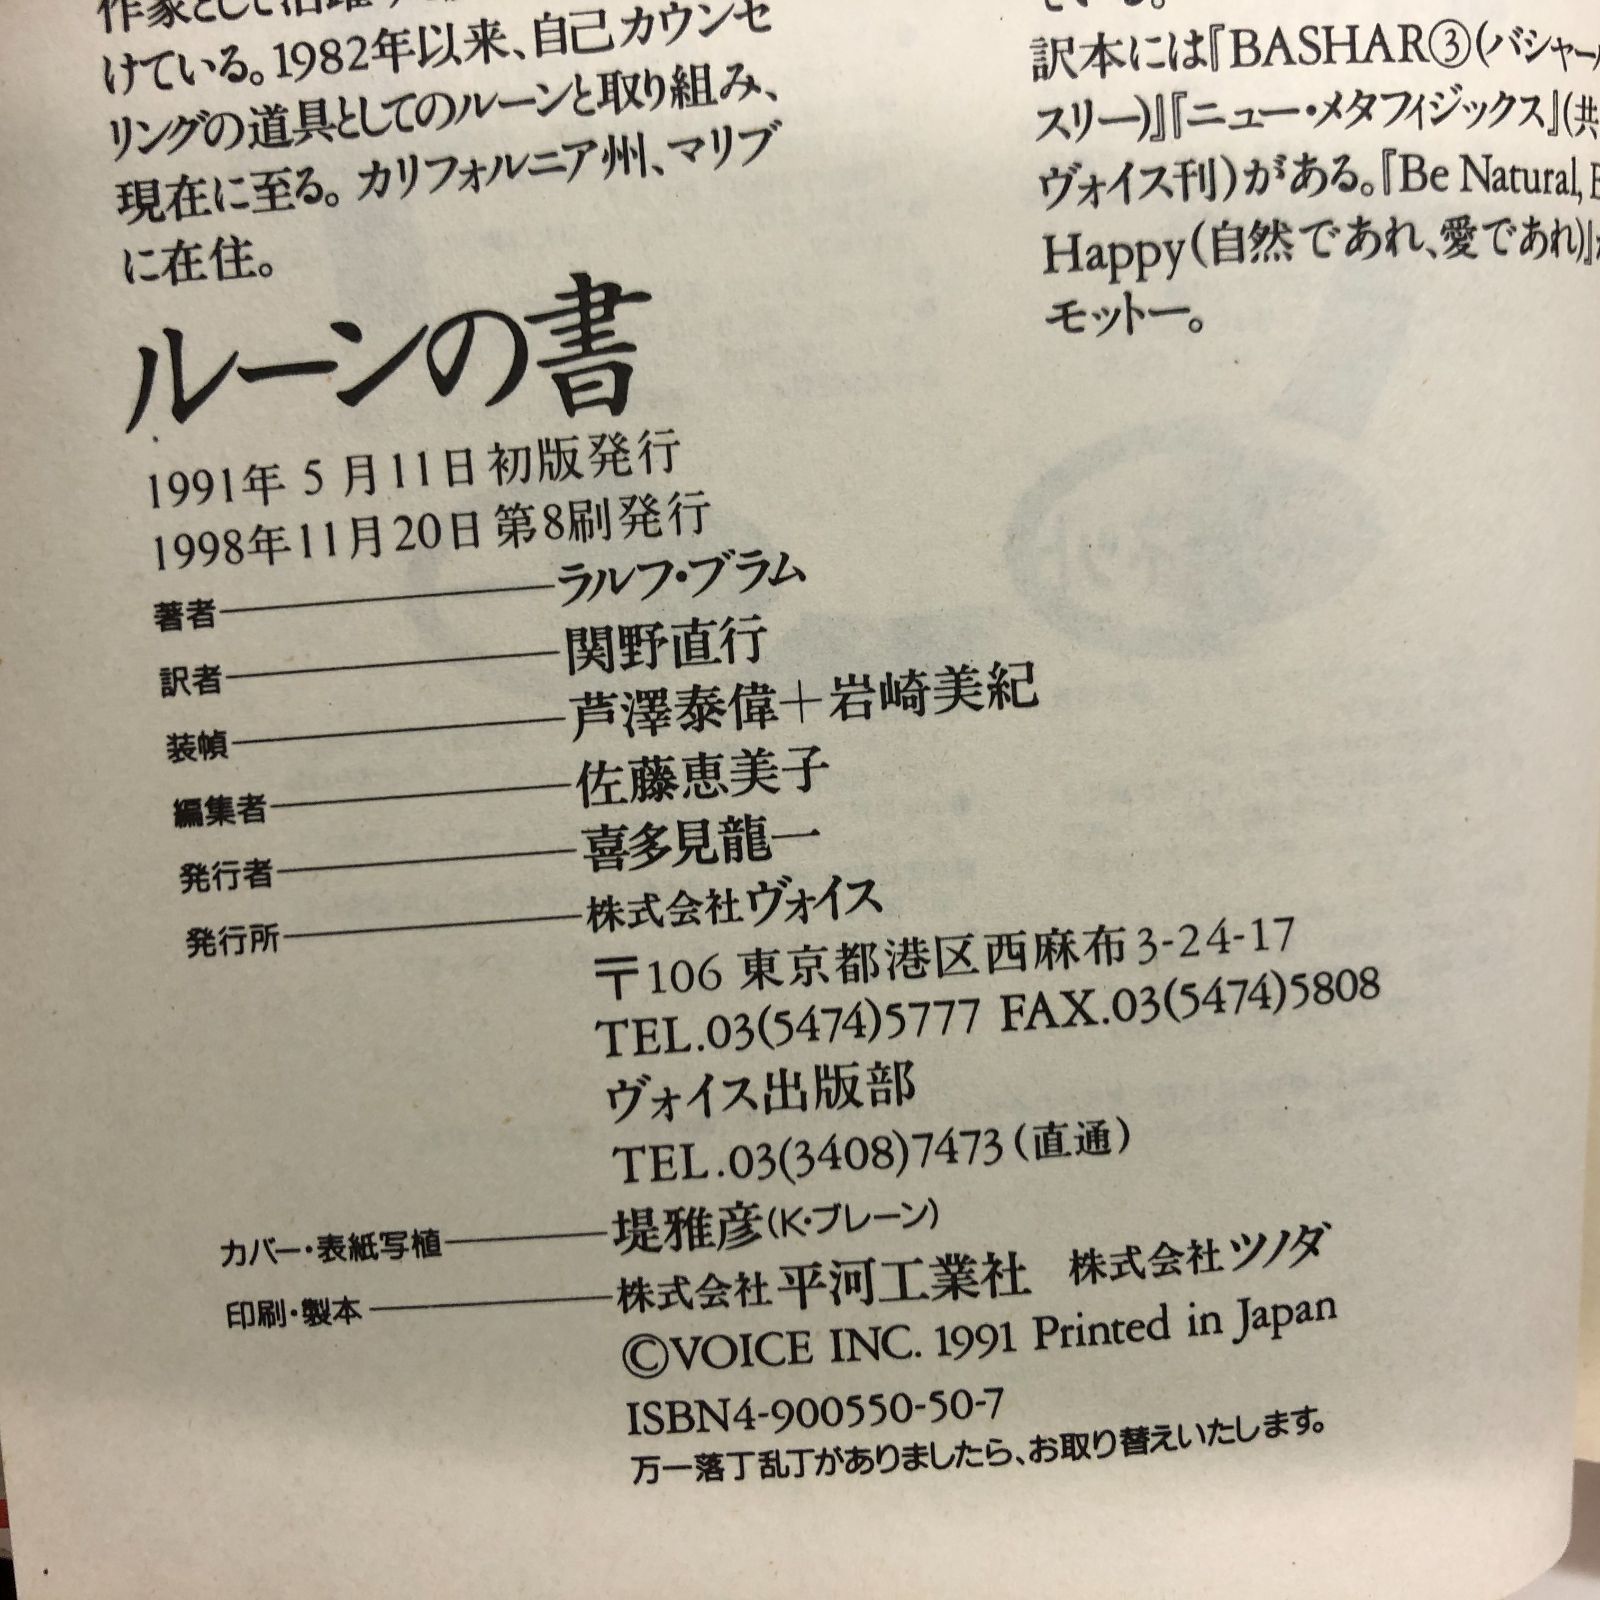 作家として活躍
けている。1982年以来、自己カウンセ
リングの道具としてのルーンと取り組み、
現在に至る。カリフォルニア州、マリブ
に在住。
ている。
訳本には『BASHAR③(バシャール
スリー)』『ニュー・メタフィジックス』(共
ヴォイス刊)がある。『Be Natural,
Happy(自然であれ、愛であれ)』
モットー。
ルーンの書
1991年5月11日初版発行
1998年11月20日第8刷発行
著者 ラルフ・ブラム
訳者 関野直行
装幀 芦澤泰偉+岩崎美紀
編集者 佐藤恵美子
発行者 喜多見龍一
発行所 株式会社ヴォイス
〒106 東京都港区西麻布3-24-17
TEL.03(5474)5777 FAX.03(5474)5808
ヴォイス出版部
TEL.03(3408)7473(直通)
カバー・表紙写植 堤雅彦(K・ブレーン)
印刷・製本 株式会社平河工業社 株式会社ツノダ
©VOICE INC. 1991 Printed in Japan
ISBN4-900550-50-7
万一落丁乱丁がありましたら、お取り替えいたします。